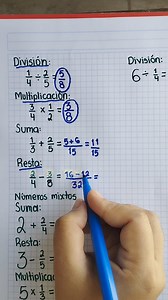 División:
1/4 ÷ 2/5 = 5/8
Multiplicación:
3/4 x 1/2 = 3/8
Suma:
1/3 + 2/5 = 5+6/15 = 11/15
Resta:
2/4 - 3/8 = 16-12/32 =
Números mixtos
Suma:
2 + 2/4 =
Resta:
3 - 2/5 =
Multiplicac
5 x 1/3 =
División:
6 ÷ 1/4 =